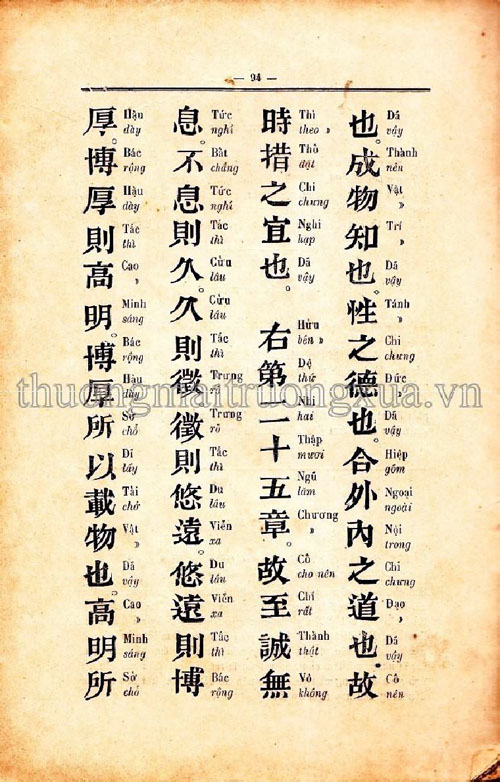 — 94 —
也。成物知也。性之德也。合外內之道也。故
Dã vậy Thành nên Vật » Trí » Dã vậy Tánh » Chi chưng Đức » Dã vậy Hiệp gồm Ngoại ngoài Nội trong Chi chưng Đạo » Dã vậy Cố nên
時措之宜也。 右第二十五章。故至誠無
Thì theo » Thố đặt Chi chưng Nghi hạp Dã vậy Hữu bên » Đệ thứ Nhì hai Thập mươi Ngũ lăm Chương » Cố cho nên Chí rất Thành thật Vô không
息。不息則久。久則徵徵則悠遠。悠遠則博
Tức nghỉ Bất chẳng Tức nghỉ Tắc thì Cửu lâu Cửu lâu Tắc thì Trưng Trưng rõ Tắc thì Du lâu Viễn xa Du lâu Viễn xa Tắc thì Bác rộng
厚。博厚則高明。博厚所以載物也。高明所
Hậu dày Bác rộng Hậu dày Tắc thì Cao » Minh sáng Bác rộng Hậu dày Sở chỗ Dĩ lấy Tải chở Vật » Dã vậy Cao » Minh sáng Sở chỗ
thuongmaitruongxua.vn